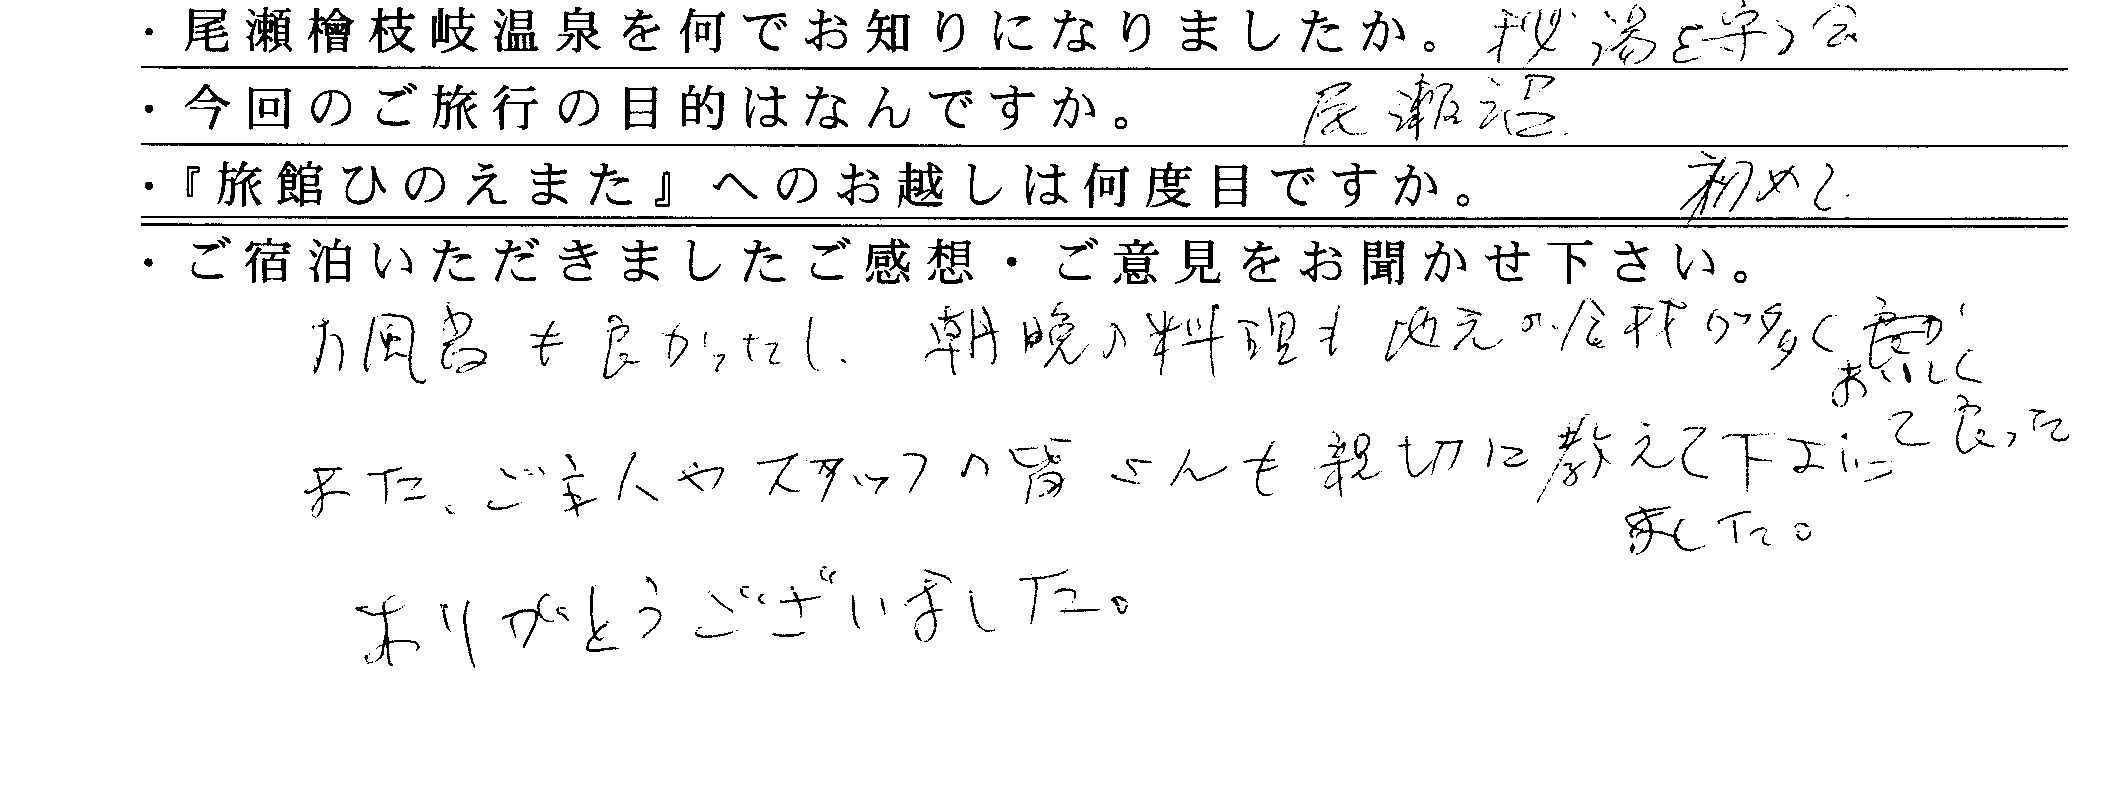 ・尾瀬檜枝岐温泉を何でお知りになりましたか。 秘湯を守る会
・今回のご旅行の目的はなんですか。 尾瀬沼
・『旅館ひのえまた』へのお越しは何度目ですか。 初めて
・ご宿泊いただきましたご感想・ご意見をお聞かせ下さい。
お風呂も良かったし、朝晩の料理も地元の食材が多く
おいしくて良かった
また、ご主人やスタッフの皆さんも親切に教えて下さい
ました。
ありがとうございました。